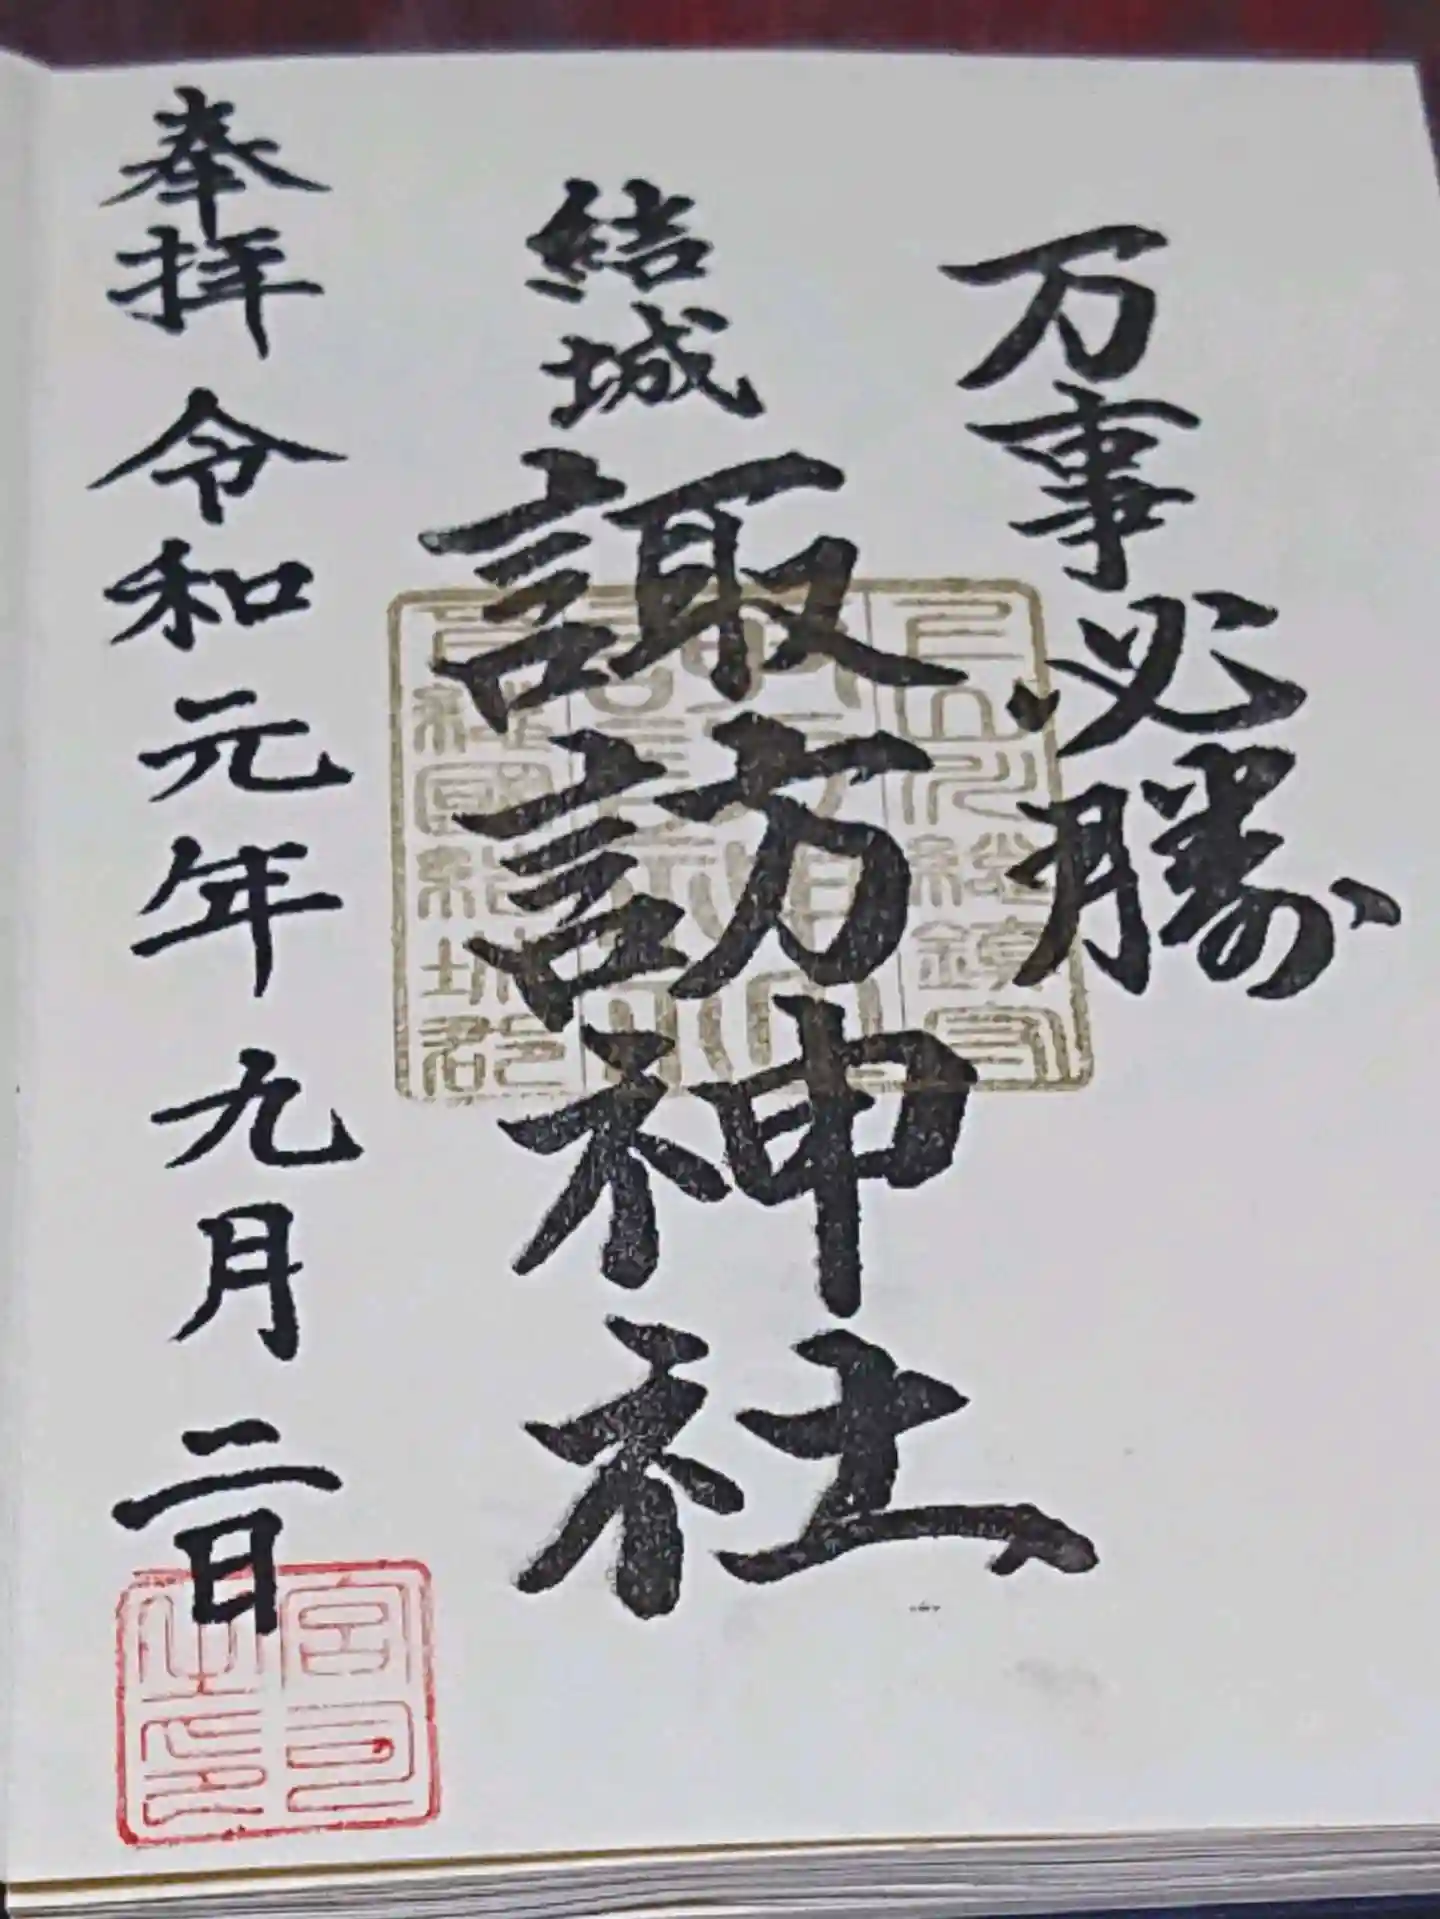 万事必勝
結城
諏訪神社
奉拝 令和元年 九月 二日
宮司之印